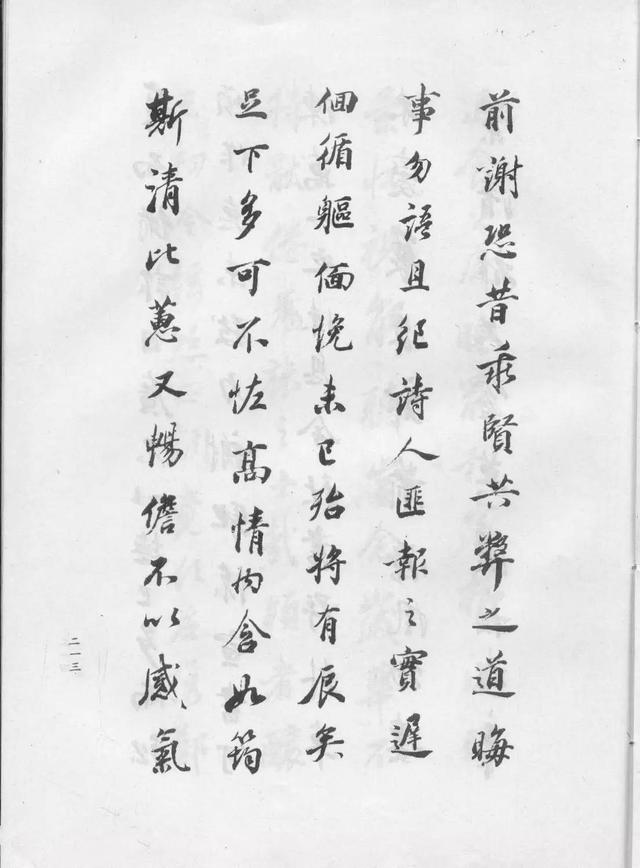 前謝恐昔乖賢共弊之道晦
事勿語且紀詩人匪報之實遲
佪循軀偭悗未已殆將有辰矣
足下多可不怪高情內含如筠
斯清比蕙又暢儋不以感氣
二一三